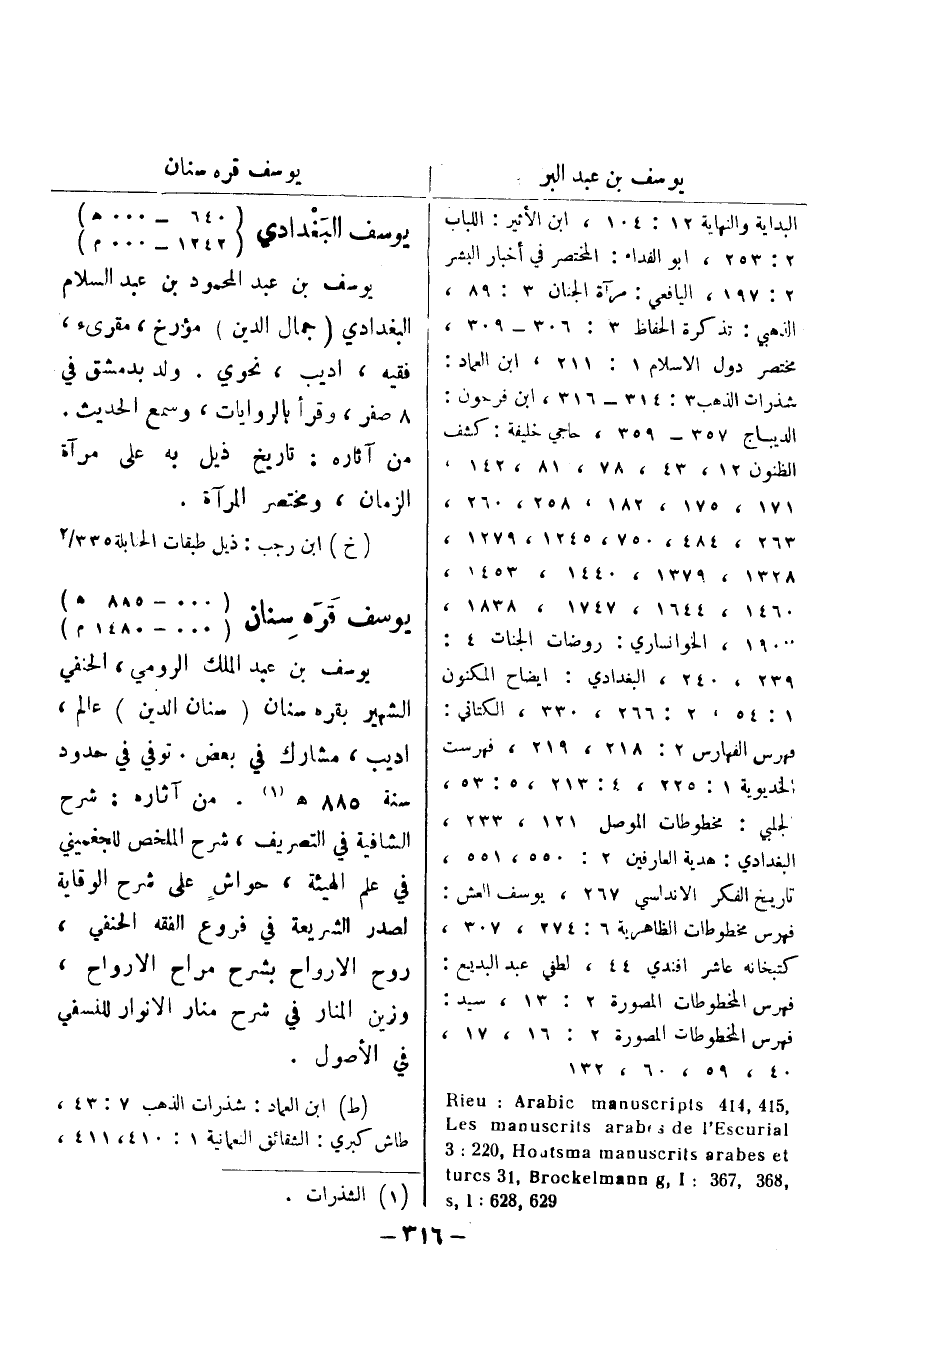 يوسف بن عبد البر
يوسف قره سنان
البداية والنهاية ١٢ : ١٠٤ ، ابن الأثير : اللباب
٢ : ٢٥٣ ، ابو الفداء : المختصر في أخبار البشر
٢ : ١٩٧ ، اليافعي : مرآة الجنان ٣ : ٨٩ ،
الذهبي : تذكرة الحفاظ ٣ : ٣٠٦ – ٣٠٩ ،
مختصر دول الاسلام ١ : ٢١١ ، ابن العماد :
شذرات الذهب ٣ : ٣١٤ – ٣١٦ ، ابن فرحون :
الديباج ٣٥٧ – ٣٥٩ ، حاجي خليفة : كشف
الظنون ١٢ ، ٤٣ ، ٧٨ ، ٨١ ، ١٤٢ ،
١٧١ ، ١٧٥ ، ١٨٢ ، ٢٥٨ ، ٢٦٠ ،
٢٦٣ ، ٤٨٤ ، ٧٥٠ ، ١٢٤٥ ، ١٢٧٩ ،
١٣٢٨ ، ١٣٧٩ ، ١٤٤٠ ، ١٤٥٣ ،
١٤٦٠ ، ١٦٤٤ ، ١٧٤٧ ، ١٨٣٨ ،
١٩٠٠ ، الخوانساري : روضات الجنات ٤ :
٢٣٩ ، ٢٤٠ ، البغدادي : ايضاح المكنون
١ : ٥٤ ، ٢ : ٢٦٦ ، ٣٣٠ ، الكتاني :
فهرس الفهارس ٢ : ٢١٨ ، ٢١٩ ، فهرست
الخديوية ١ : ٢٢٥ ، ٤ : ٢١٣ ، ٥ : ٥٣ ،
الجلبي : مخطوطات الموصل ١٢١ ، ٢٣٣ ،
البغدادي : هدية العارفين ٢ : ٥٥٠ ، ٥٥١ ،
تاريخ الفكر الاندلسي ٢٦٧ ، يوسف العش :
فهرس مخطوطات الظاهرية ٦ : ٢٧٤ ، ٣٠٧ ،
كتبخانه عاشر افندي ٤٤ ، لطفي عبد البديع :
فهرس المخطوطات المصورة ٢ : ١٣ ، سيد :
فهرس المخطوطات المصورة ٢ : ١٦ ، ١٧ ،
٤٠ ، ٥٩ ، ٦٠ ، ١٣٢
Rieu : Arabic manuscripts 414, 415,
Les manuscrits arabes de l'Escurial
3 : 220, Houtsma manuscrits arabes et
turcs 31, Brockelmann g, I : 367, 368,
s, I : 628, 629
يوسف البَغْدادي ( ٦٤٠ – ٠٠٠ ه )
( ١٢٤٢ – ٠٠٠ م )
يوسف بن عبد المحمود بن عبد السلام
البغدادي ( جمال الدين ) مؤرخ ، مقرىء ،
فقيه ، اديب ، نحوي . ولد بدمشق في
٨ صفر ، وقرأ بالروايات ، وسمع الحديث .
من آثاره : تاريخ ذيل به على مرآة
الزمان ، ومختصر المرآة .
( خ ) ابن رجب : ذيل طبقات الحنابلة ٢/٣٣٥
يوسف قَرَه سِنان ( ٠٠٠ – ٨٨٥ ه )
( ٠٠٠ – ١٤٨٠ م )
يوسف بن عبد الملك الرومي ، الحنفي
الشهير بقره سنان ( سنان الدين ) عالم ،
اديب ، مشارك في بعض . توفي في حدود
سنة ٨٨٥ ه (١) . من آثاره : شرح
الشافية في التصريف ، شرح الملخص للجغميني
في علم الهيئة ، حواشٍ على شرح الوقاية
لصدر الشريعة في فروع الفقه الحنفي ،
روح الارواح بشرح مراح الارواح ،
وزين المنار في شرح منار الانوار للنسفي
في الأصول .
(ط) ابن العماد : شذرات الذهب ٧ : ٤٣ ،
طاش كبري : الشقائق النعمانية ١ : ٤١٠ ، ٤١١ ،
(١) الشذرات .
– ٣١٦ –